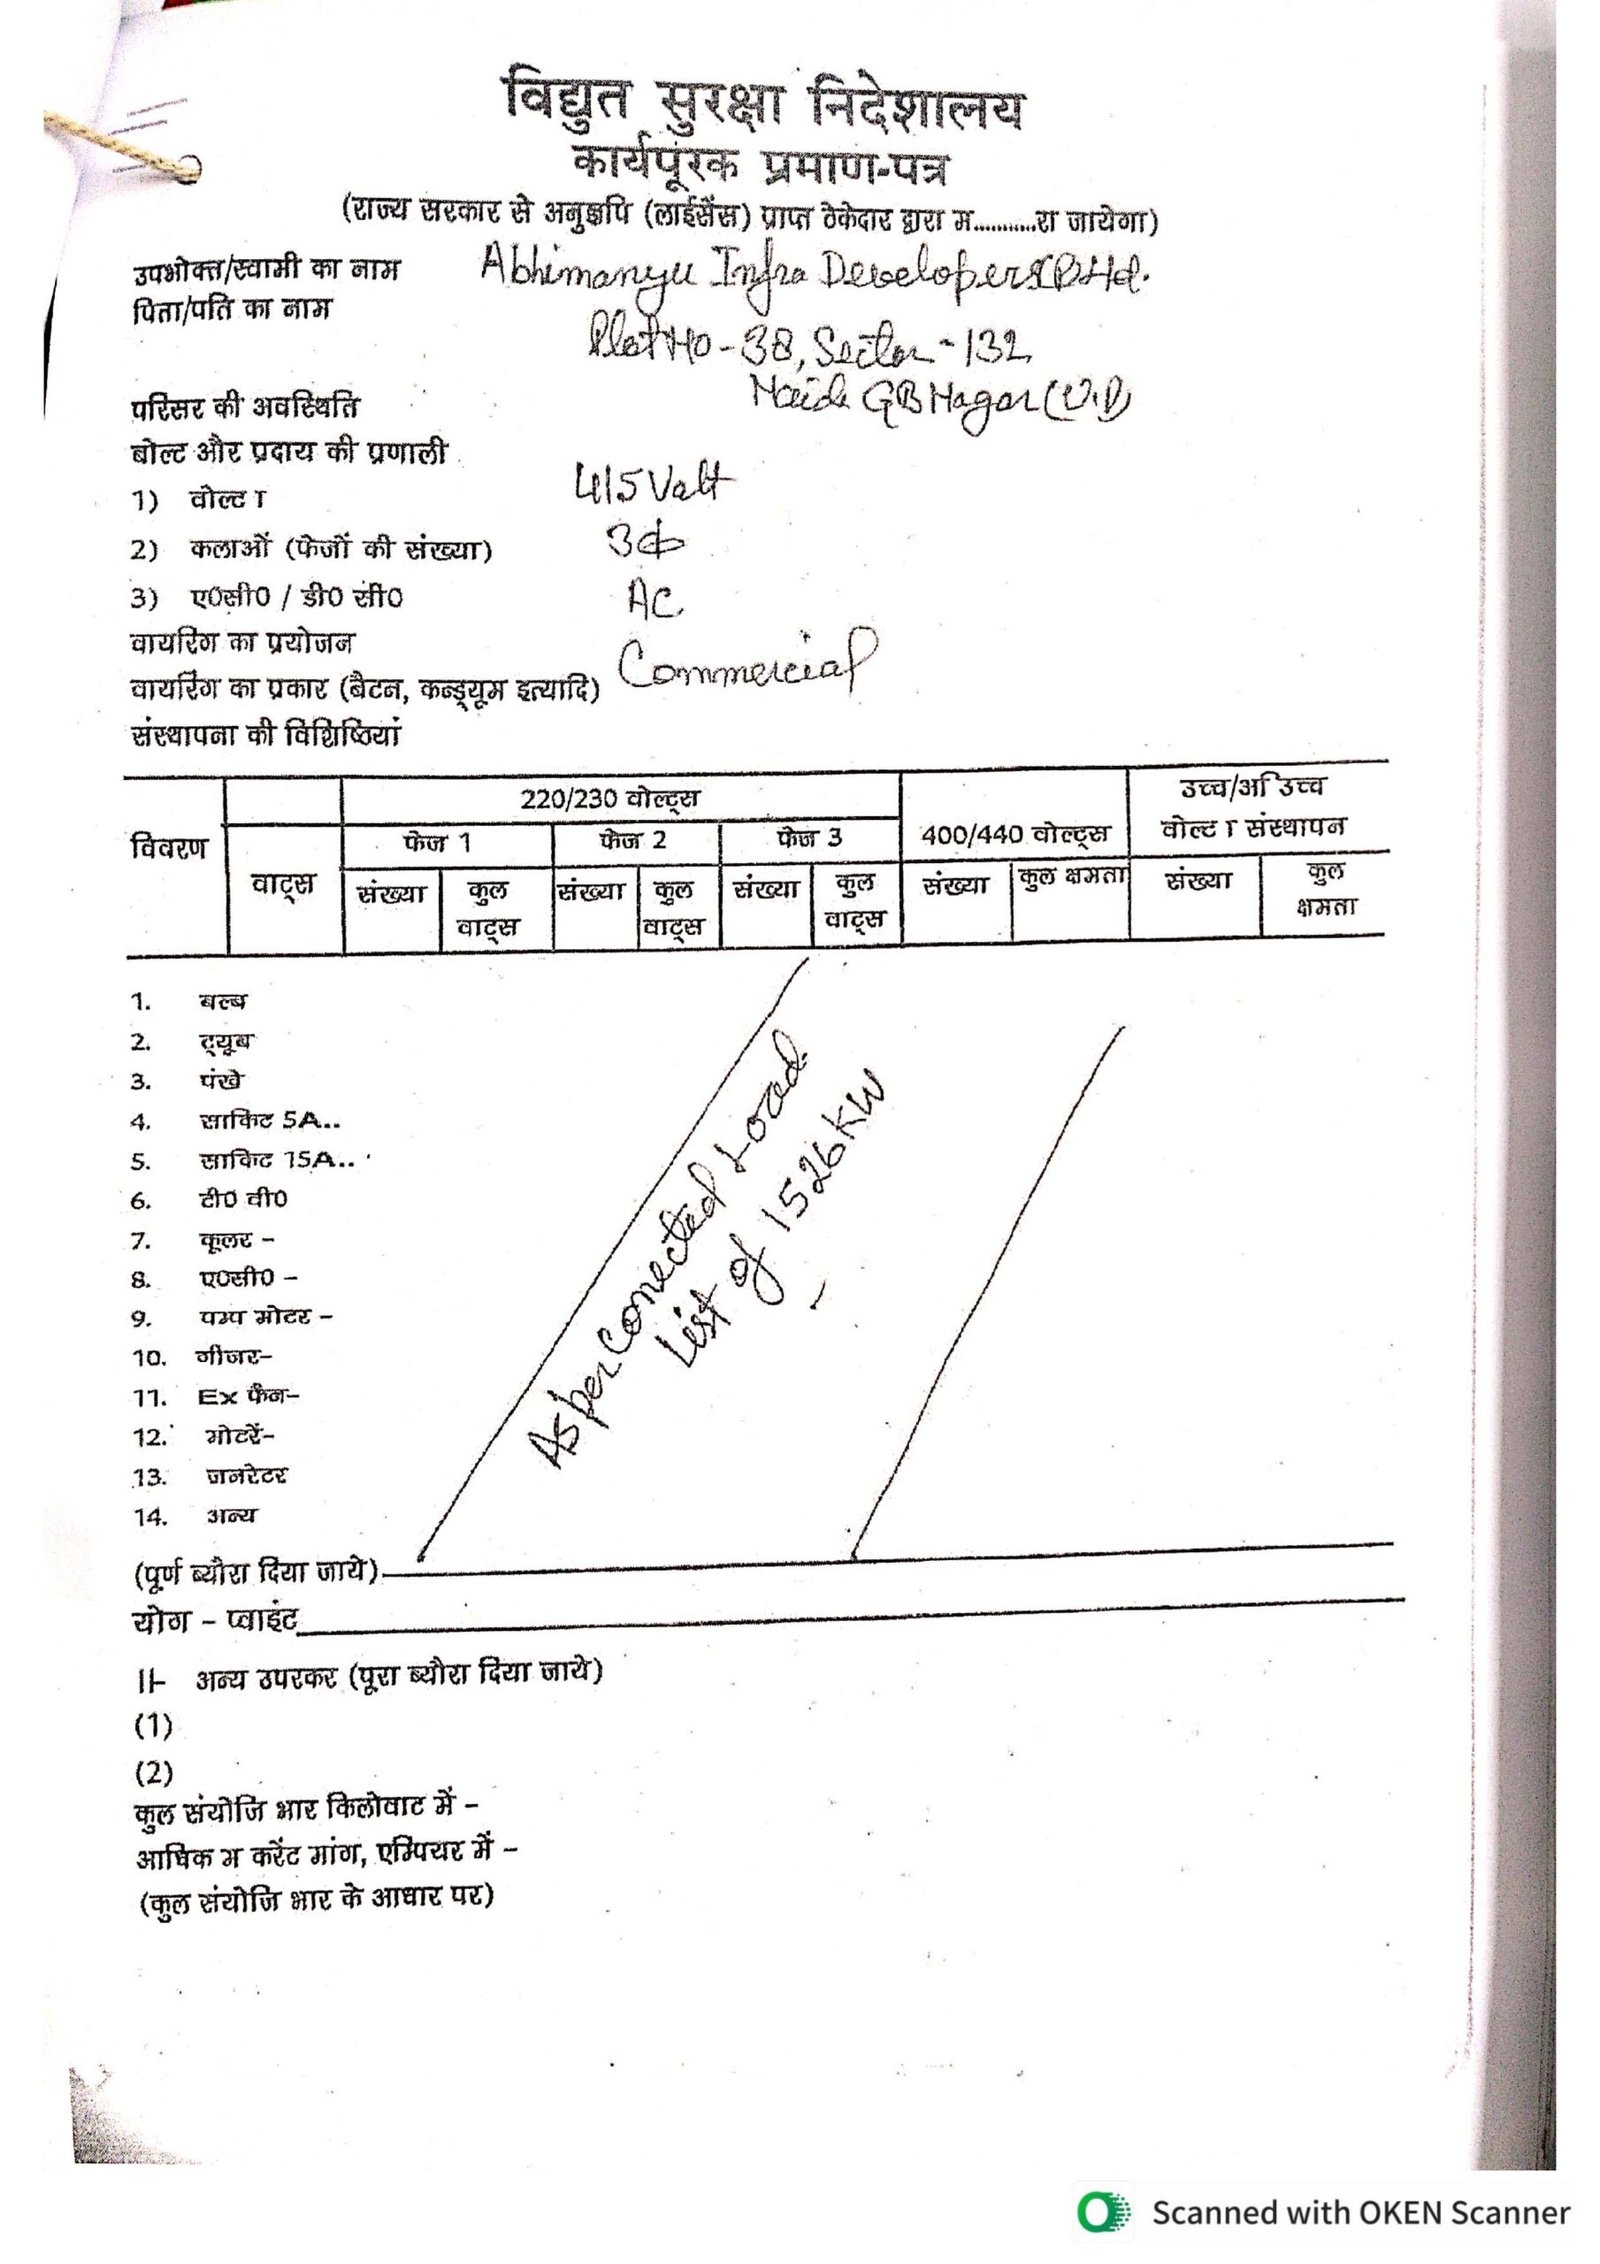 विद्युत सुरक्षा निदेशालय
कार्यपूरक प्रमाण-पत्र
(राज्य सरकार से अनुज्ञपि (लाईसैंस) प्राप्त ठेकेदार द्वारा म...........रा जायेगा)
उपभोक्त/स्वामी का नाम Abhimanyu Infra Developers (P) Ltd.
पिता/पति का नाम
Plot No - 38, Sector - 132
Noida GB Nagar (U.P)
परिसर की अवस्थिति
बोल्ट और प्रदाय की प्रणाली
1) वोल्ट ा 415 Volt
2) कलाओं (फेजों की संख्या) 3ф
3) ए0सी0 / डी0 सी0 AC
वायरिंग का प्रयोजन
वायरिंग का प्रकार (बैटन, कन्ड्यूम इत्यादि) Commercial
संस्थापना की विशिष्ठियां
विवरण वाट्स 220/230 वोल्ट्स 400/440 वोल्ट्स उच्च/अिउच्च वोल्ट ा संस्थापन
फेज 1 फेज 2 फेज 3
संख्या कुल वाट्स संख्या कुल वाट्स संख्या कुल वाट्स संख्या कुल क्षमता संख्या कुल क्षमता
1. बल्ब
2. ट्यूब
3. पंखे
4. साकिट 5A..
5. साकिट 15A..
6. टी0 वी0
7. कूलर -
8. ए0सी0 -
9. पम्प मोटर -
10. गीजर-
11. Ex फैन-
12. मोटरें-
13. जनरेटर
14. अन्य
As per Conected Load
List of 1526 KW
(पूर्ण ब्यौरा दिया जाये)
योग - प्वाइंट
II- अन्य उपरकर (पूरा ब्यौरा दिया जाये)
(1)
(2)
कुल संयोजि भार किलोवाट में -
आधिक म करेंट मांग, एम्पियर में -
(कुल संयोजि भार के आधार पर)
Scanned with OKEN Scanner